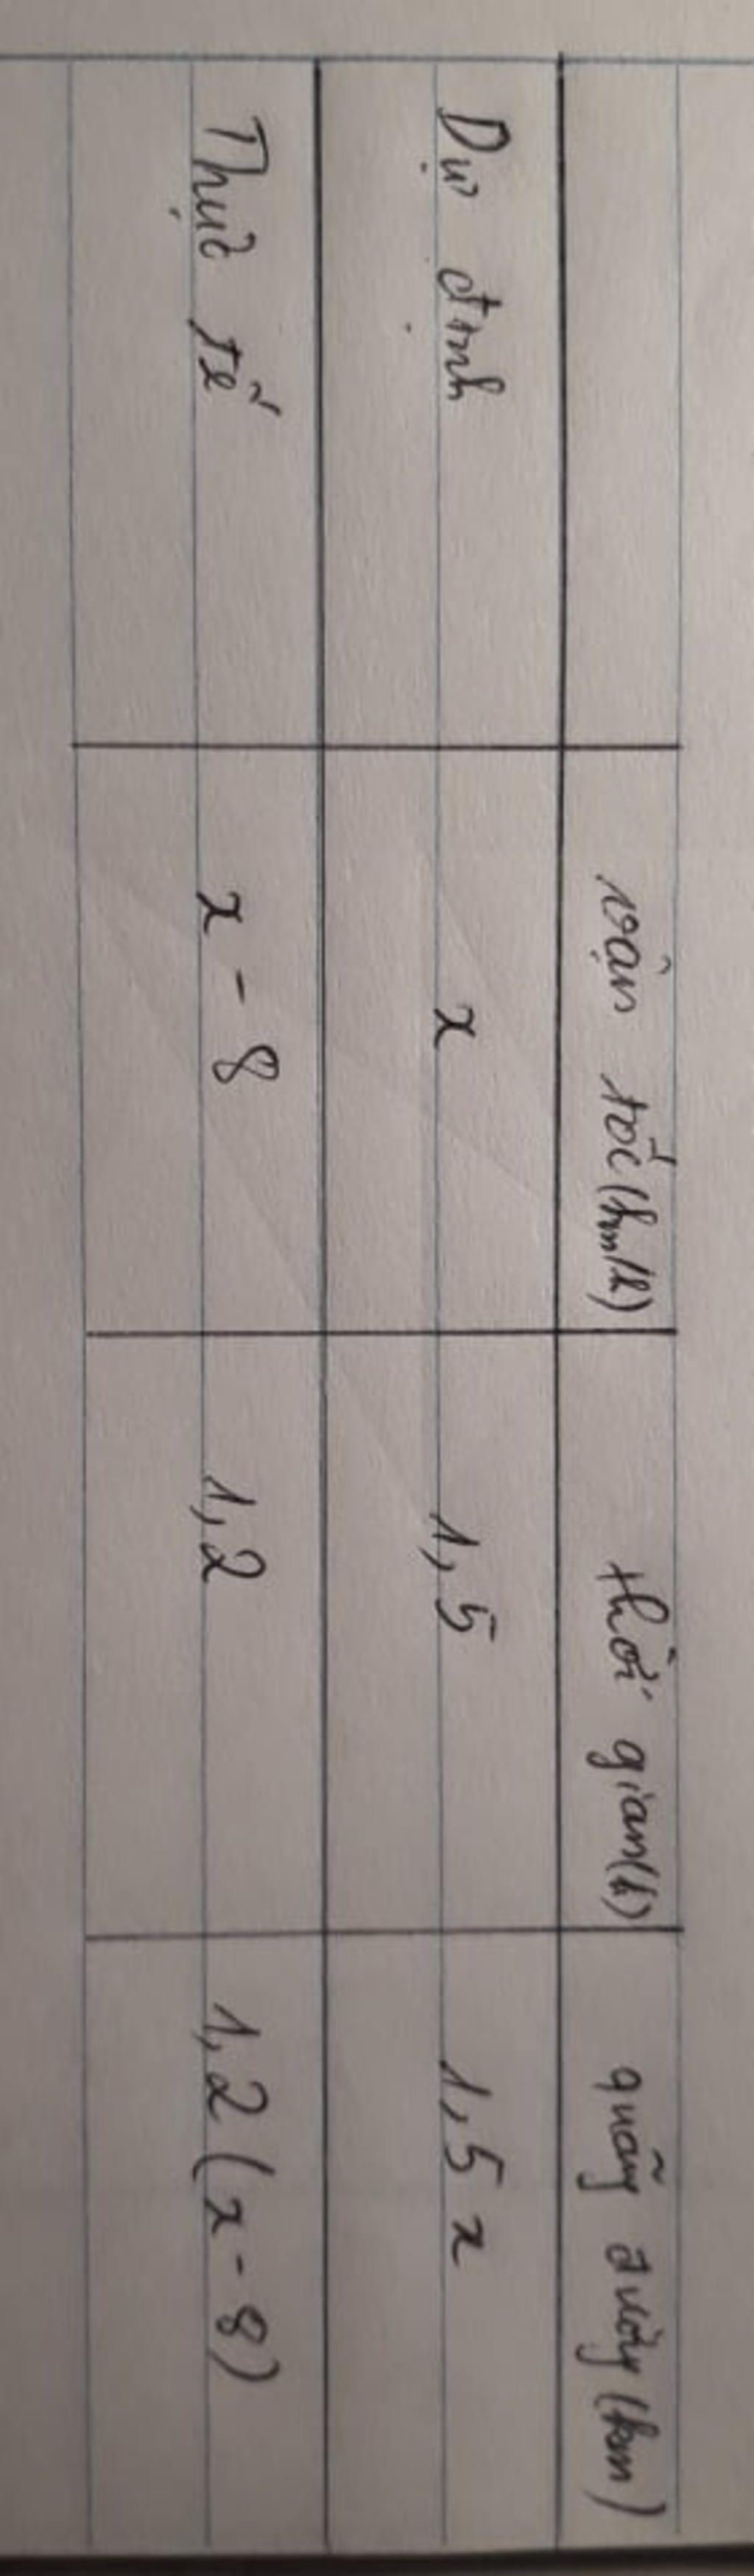 vận tốc (km/h) thời gian (h) quãng đường (km)
Dự định x 1,5 1,5x
Thực tế x - 8 1,2 1,2 (x - 8)